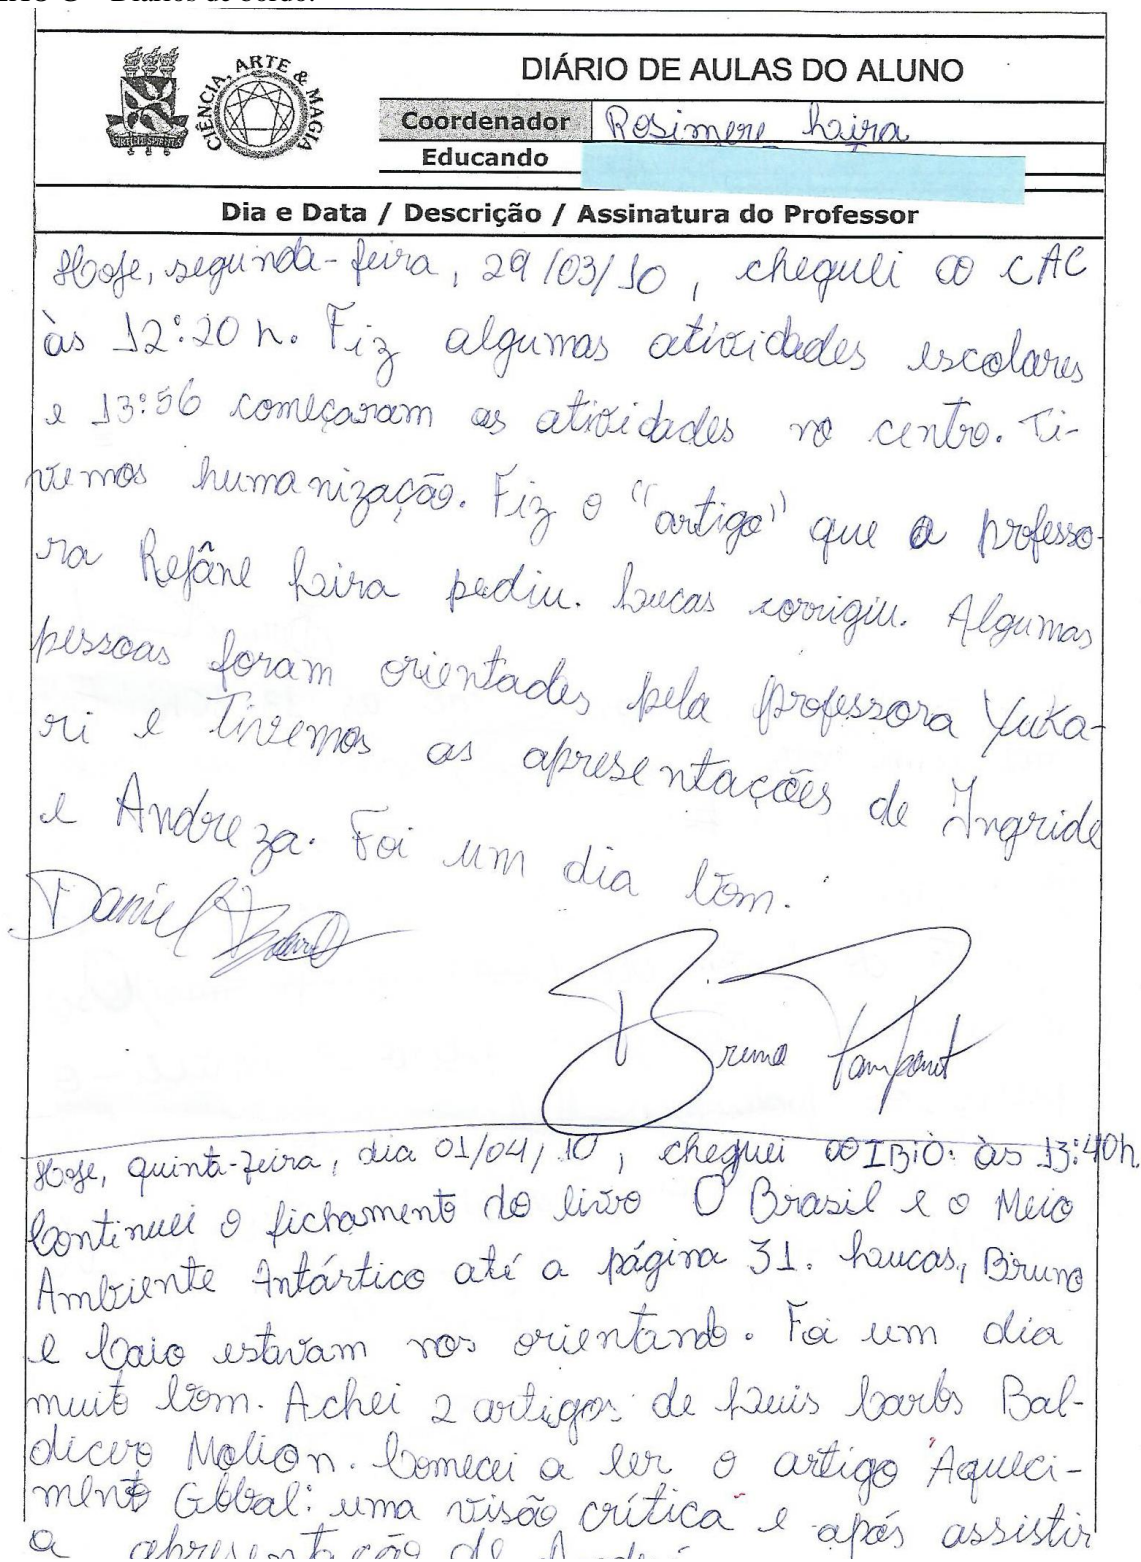 Diários de bordo.
CIÊNCIA, ARTE & MAGIA
DIÁRIO DE AULAS DO ALUNO
Coordenador Rosimere Lira
Educando
Dia e Data / Descrição / Assinatura do Professor
Hoje, segunda-feira, 29/03/10, cheguei ao CAC
às 12:20 h. Fiz algumas atividades escolares
e 13:56 começaram as atividades no centro. Ti-
vemos humanização. Fiz o "artigo" que a professo-
ra Rejâne Lira pediu. Lucas corrigiu. Algumas
pessoas foram orientades pela professora Yuka-
ri e Tivemos as apresentações de Ingride
e Andreza. Foi um dia bom.
Daniel
Bruno Pamponet
Hoje, quinta-feira, dia 01/04/10, cheguei ao IBIO. às 13:40h.
Continuei o fichamento do livro O Brasil e o Meio
Ambiente Antártico até a página 31. Lucas, Bruno
e Caio estavam nos orientando. Foi um dia
muito bom. Achei 2 artigos de Luis Carlos Bal-
dicero Molion. Comecei a ler o artigo "Aqueci-
mento Global: uma visão crítica" e após assistir
a apresentação de